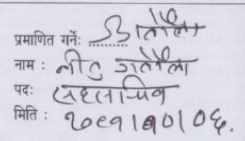 प्रमाणित गर्नेः ........
नाम : नीतु गतौला
पदः सहसचिव
मिति : २०८१।१०।०६.